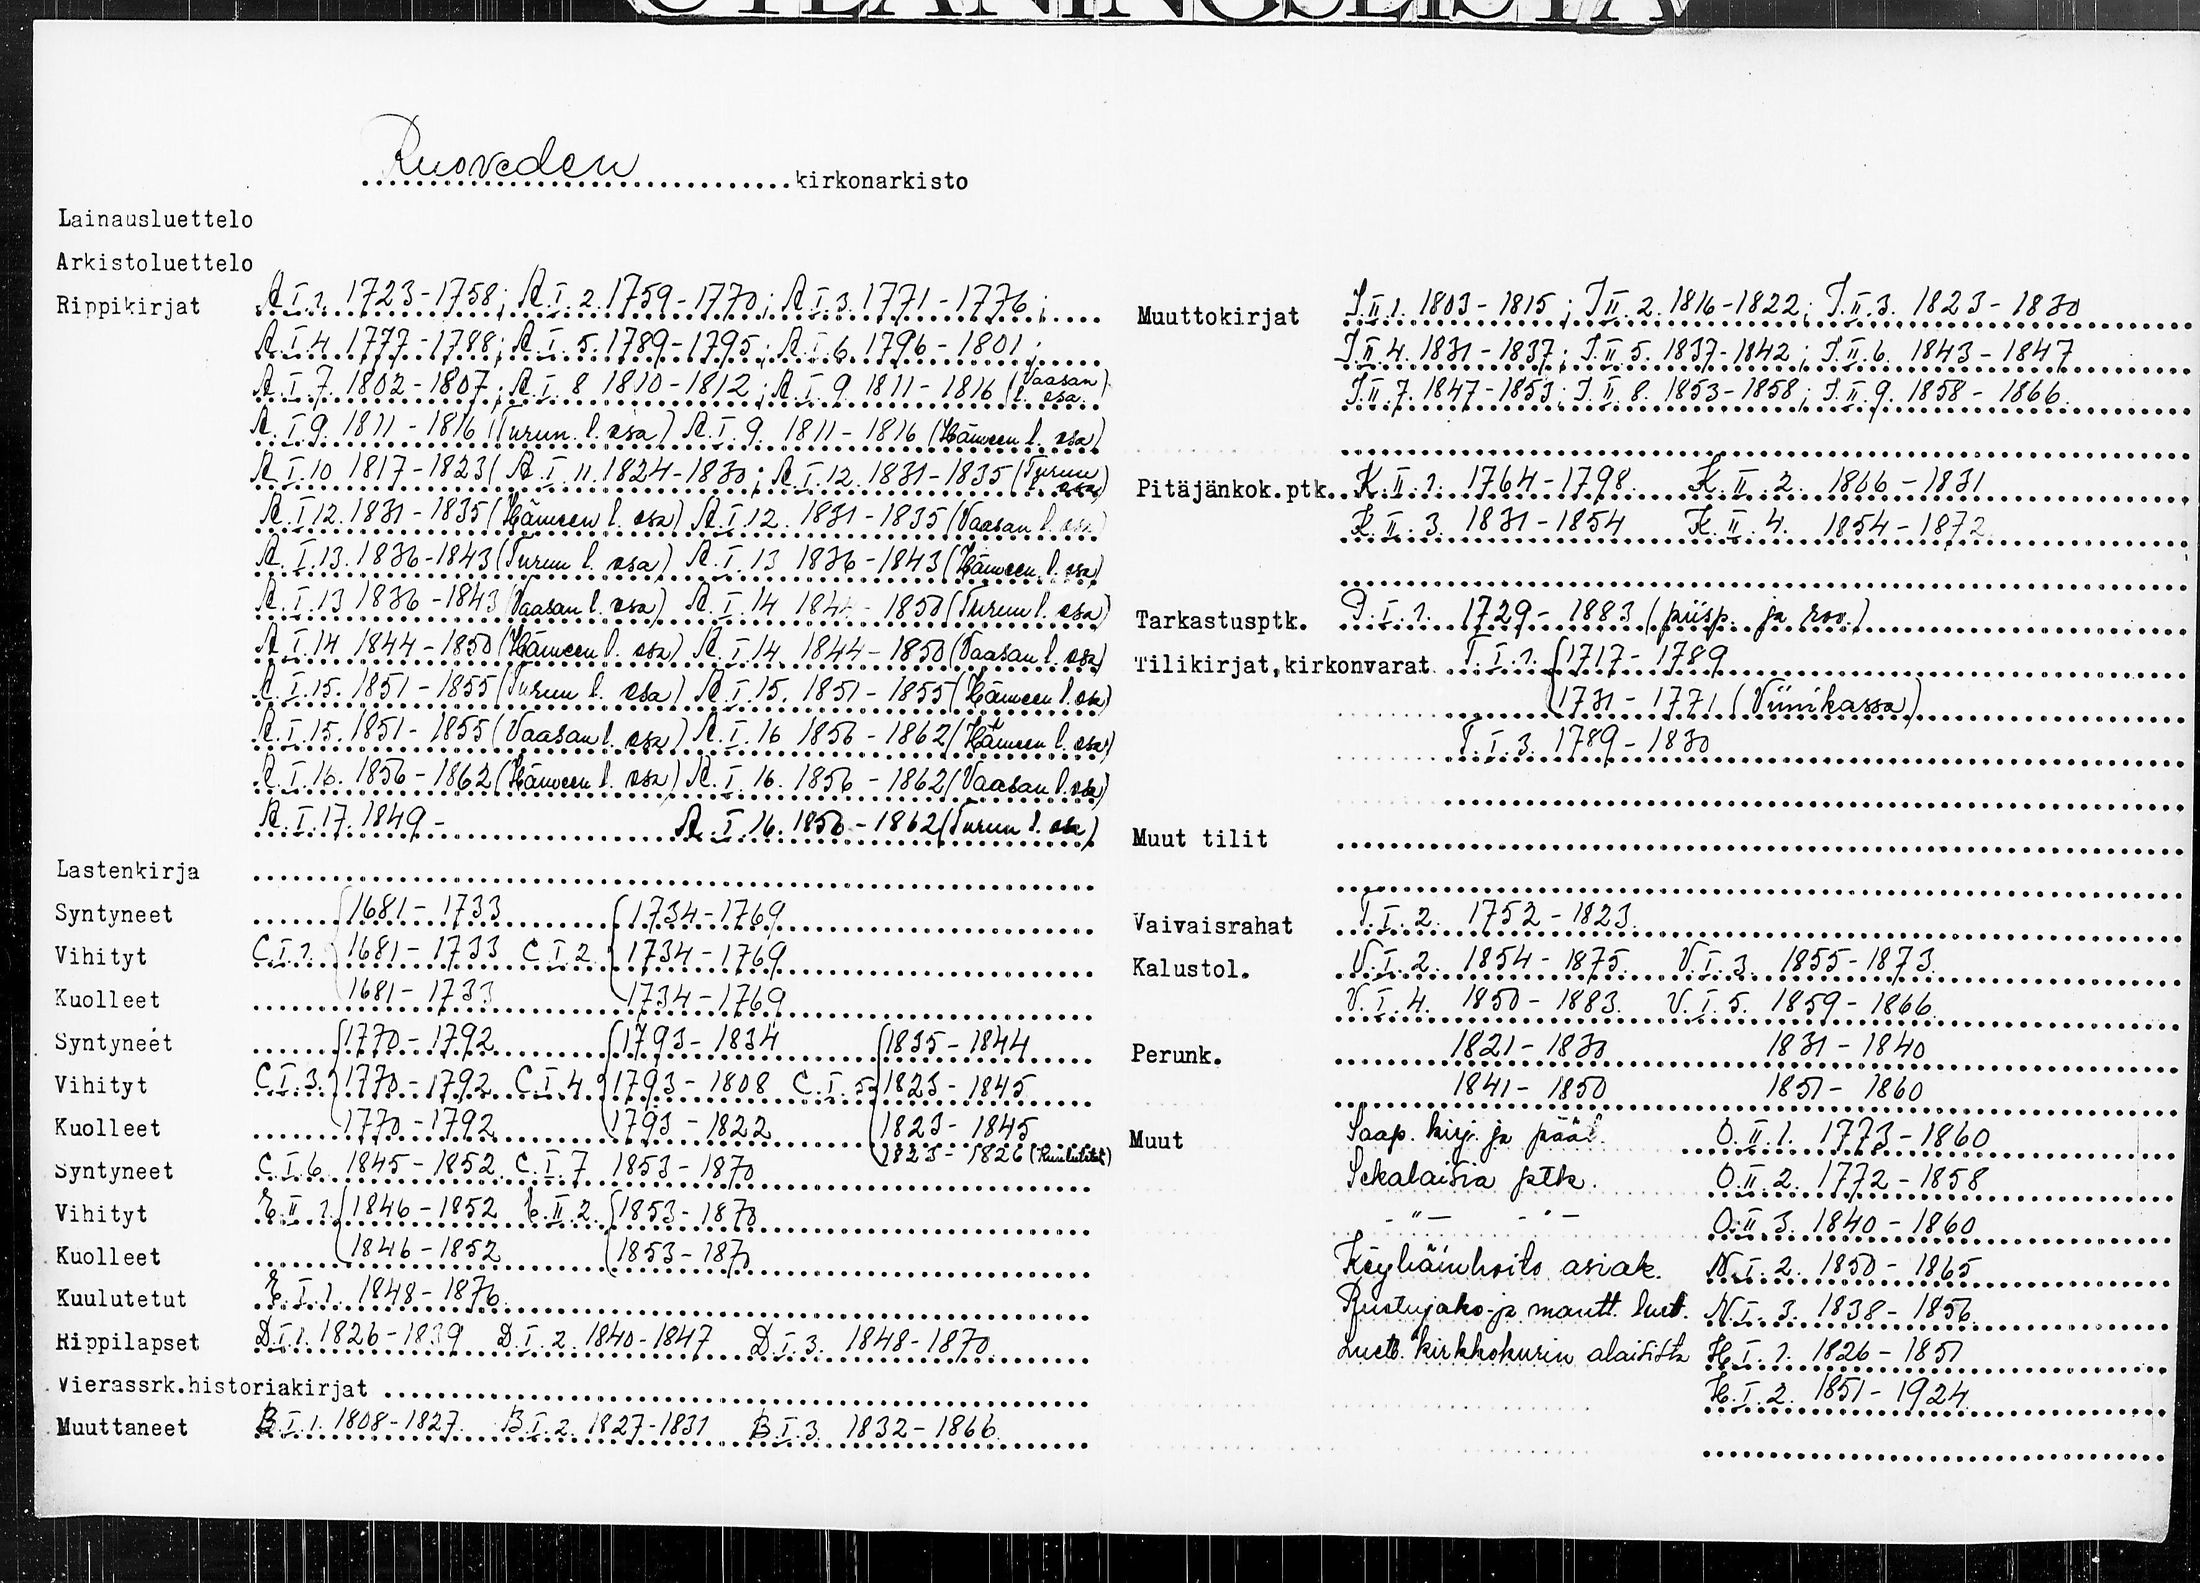 UTLÅNINGSLISTA
Ruoveden kirkonarkisto
Lainausluettelo
Arkistoluettelo
Rippikirjat A.I.1. 1723-1758; A.I.2. 1759-1770; A.I.3. 1771-1776;
A.I.4. 1777-1788; A.I.5. 1789-1795; A.I.6. 1796-1801;
A.I.7. 1802-1807; A.I.8 1810-1812; A.I.9. 1811-1816 (Vaasan l. osa)
A.I.9. 1811-1816 (Turun l. osa) A.I.9. 1811-1816 (Hämeen l. osa)
A.I.10 1817-1823( A.I.11. 1824-1830; A.I.12. 1831-1835 (Turun osa)
A.I.12. 1831-1835 (Hämeen l. osa) A.I.12. 1831-1835 (Vaasan l. osa
A.I.13. 1836-1843 (Turun l. osa) A.I.13 1836-1843 (Hämeen l. osa)
A.I.13 1836-1843 (Vaasan l. osa) A.I.14 1844-1850 (Turun l. osa)
A.I.14 1844-1850 (Hämeen l. osa) A.I.14. 1844-1850 (Vaasan l. osa)
A.I.15. 1851-1855 (Turun l. osa) A.I.15. 1851-1855 (Hämeen l. osa)
A.I.15. 1851-1855 (Vaasan l. osa) A.I.16 1856-1862 (Hämeen l. osa)
A.I.16. 1856-1862 (Hämeen l. osa) A.I.16. 1856-1862 (Vaasan l. osa)
A.I.17. 1849- A.I.16. 1856-1862 (Turun l. osa)
Lastenkirja
Syntyneet 1681-1733 1734-1769
Vihityt C.I.1. 1681-1733 C.I.2. 1734-1769
Kuolleet 1681-1733 1734-1769
Syntyneet 1770-1792 1793-1834 1835-1844
Vihityt C.I.3. 1770-1792 C.I.4. 1793-1808 C.I.5. 1823-1845
Kuolleet 1770-1792 1793-1822 1823-1845
1823-1826 (Kuulutetut)
Syntyneet C.I.6. 1845-1852 C.I.7 1853-1870
Vihityt E.II.1. 1846-1852 E.II.2. 1853-1870
Kuolleet 1846-1852 1853-187
Kuulutetut E.I.1. 1848-1876.
Rippilapset D.I.1. 1826-1839 D.I.2. 1840-1847 D.I.3. 1848-1870
Vierassrk.historiakirjat
Muuttaneet B.I.1. 1808-1827. B.I.2. 1827-1831 B.I.3. 1832-1866
Muuttokirjat J.II.1. 1803-1815; J.II.2. 1816-1822; J.II.3. 1823-1830
J.II.4. 1831-1837; J.II.5. 1837-1842; J.II.6. 1843-1847
J.II.7. 1847-1853; J.II.8. 1853-1858; J.II.9. 1858-1866.
Pitäjänkok.ptk. K.II.1. 1764-1798. K.II.2. 1806-1831
K.II.3. 1831-1854 K.II.4. 1854-1872.
Tarkastusptk. P.I.1. 1729-1883 (piisp. ja rov.)
Tilikirjat,kirkonvarat T.I.1. 1717-1789
1731-1771 (Viinikassa)
T.I.3. 1789-1830
Muut tilit
Vaivaisrahat T.I.2. 1752-1823.
Kalustol. V.I.2. 1854-1875. V.I.3. 1855-1873.
V.I.4. 1850-1883. V.I.5. 1859-1866.
Perunk. 1821-1830 1831-1840
1841-1850 1851-1860
Muut Saap. kirj. ja pääl. O.II.1. 1773-1860
Sekalaisia ptk. O.II.2. 1772-1858
-"- -"- O.II.3. 1840-1860
Köyhäinhoito asiak. N.I.2. 1850-1865
Ruotujako- ja mantt. luet. N.I.3. 1838-1856
Luett. kirkkokurin alaisista H.I.1. 1826-1851
H.I.2. 1851-1924